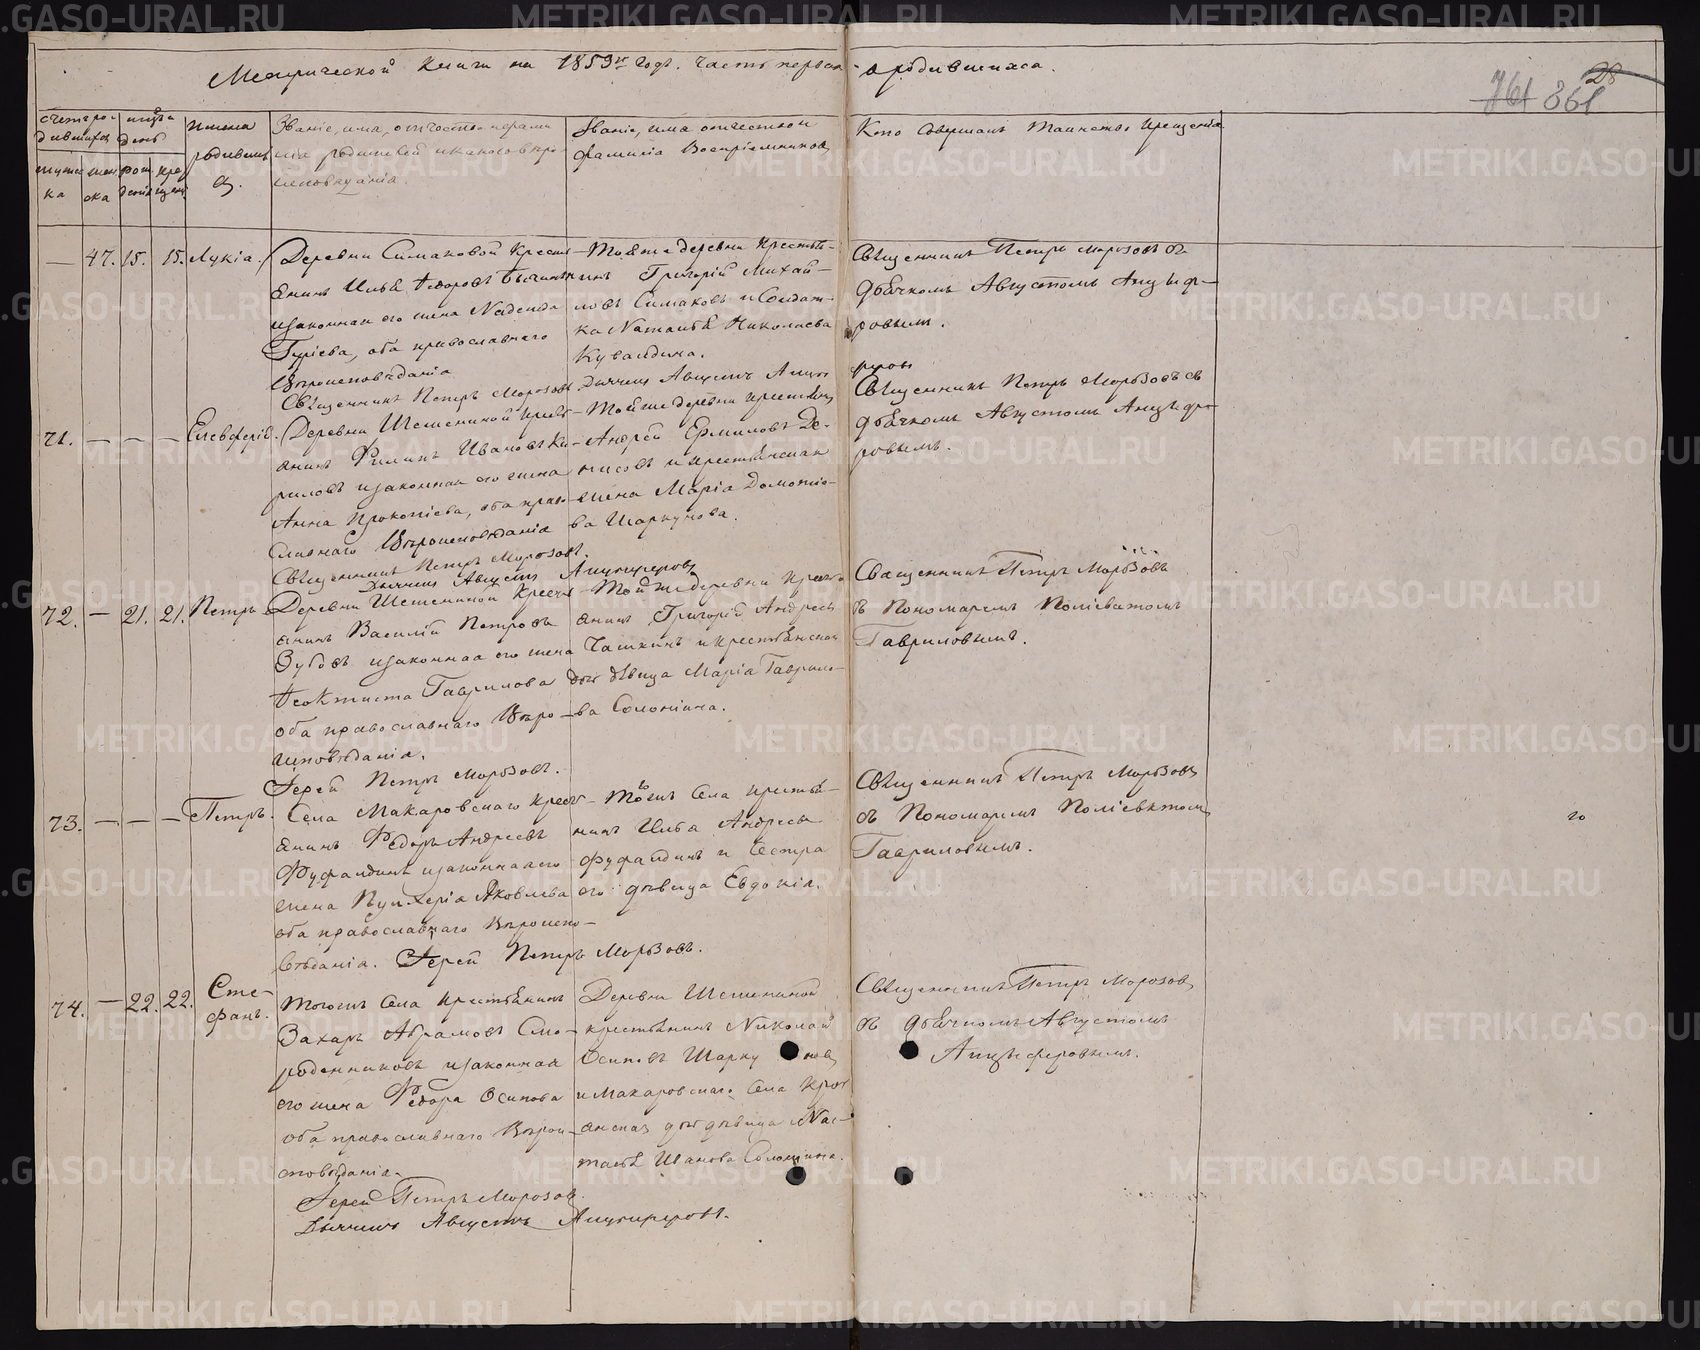 Метрической книги на 1859й годъ. Часть первая о родившихся.
28
761 861
счетъ ро-
дившихся
мѣсяцъ и
день
имена
родивших
ся.
Званіе, имя, отчество и фами
лія родителей и какого вѣро
исповѣданія.
Званіе, имя отчество и
фамилія Воспріемниковъ
Кто Совершалъ Таинство Крещенія
мужеска
женска
рожденія
крещенія
— 47. 15. 15. Лукія.
Деревни Симаковой Крестья
янинъ Илья Ѳедоровъ
и законная его жена Надежда
Гуріева, оба православнаго
Вѣроисповѣданія
Священникъ Петръ Морозовъ Дьячекъ Августъ
Той же деревни Крестья-
нинъ Григорій Михай-
ловъ Симаковъ и Солдат-
ка Наталья Николаева
Кувалдина.
Священникъ Петръ Морозовъ съ
Дьячкомъ Августомъ Анциф-
ровымъ.
71. — — — Елевферій.
Деревни Шешениной Крест-
янинъ Филипъ Ивановъ Ки-
риловъ и законная его жена
Анна Прокопіева, оба право-
славнаго Вѣроисповѣданія
Священникъ Петръ Морозовъ.
Дьячекъ Августъ Анциферовъ
Той же деревни крестьянинъ
Андрей Ермиловъ Де-
нисовъ и крестьянская
жена Марія Домотіо-
ва Шаркунова.
Священникъ Петръ Морозовъ съ
дьячкомъ Августомъ Анцифе-
ровымъ.
72. — 21. 21. Петръ
Деревни Шешениной Крестья
янинъ Василій Петровъ
Зубовъ и законная его жена
Ѳеоктиста Гаврилова
оба православнаго Вѣро-
исповѣданія.
Іерей Петръ Морозовъ.
Той же деревни Крест
янинъ Григорій Андреевъ
Чашкинъ и крестьянская
дочь дѣвица Марія Гаврило-
ва Соломіина.
Священникъ Петръ Морозовъ
съ Пономаремъ Поліевктомъ
Гавриловымъ.
73. — — — Петръ.
Села Макаровскаго Крест-
янинъ Ѳедоръ Андреевъ
Фуфалдинъ и законная его
жена Пулхерія Яковлева
оба православнаго Вѣроиспо-
вѣданія. Іерей Петръ Морозовъ.
Того же Села крестья-
нинъ Илья Андреевъ
Фуфалдинъ и Сестра
его дѣвица Евдокія.
Священникъ Петръ Морозовъ
съ Пономаремъ Поліевктомъ
Гавриловымъ.
го
74. — 22. 22. Сте-
фанъ.
Того же Села крестьянинъ
Захаръ Абрамовъ Смо-
родинниковъ и законная
его жена Ѳедора Осипова
оба православнаго Вѣрои-
сповѣданія.
Іерей Петръ Морозовъ.
Дьячекъ Августъ Анциферовъ.
Деревни Шешениной
крестьянинъ Николай
Осиповъ Шаркуновъ
и Макаровскаго Села Крест
янская дочь дѣвица Нас-
тасья Иванова Соломіина.
Священникъ Петръ Морозовъ
съ дьячкомъ Августомъ
Анциферовымъ.
METRIKI.GASO-URAL.RU